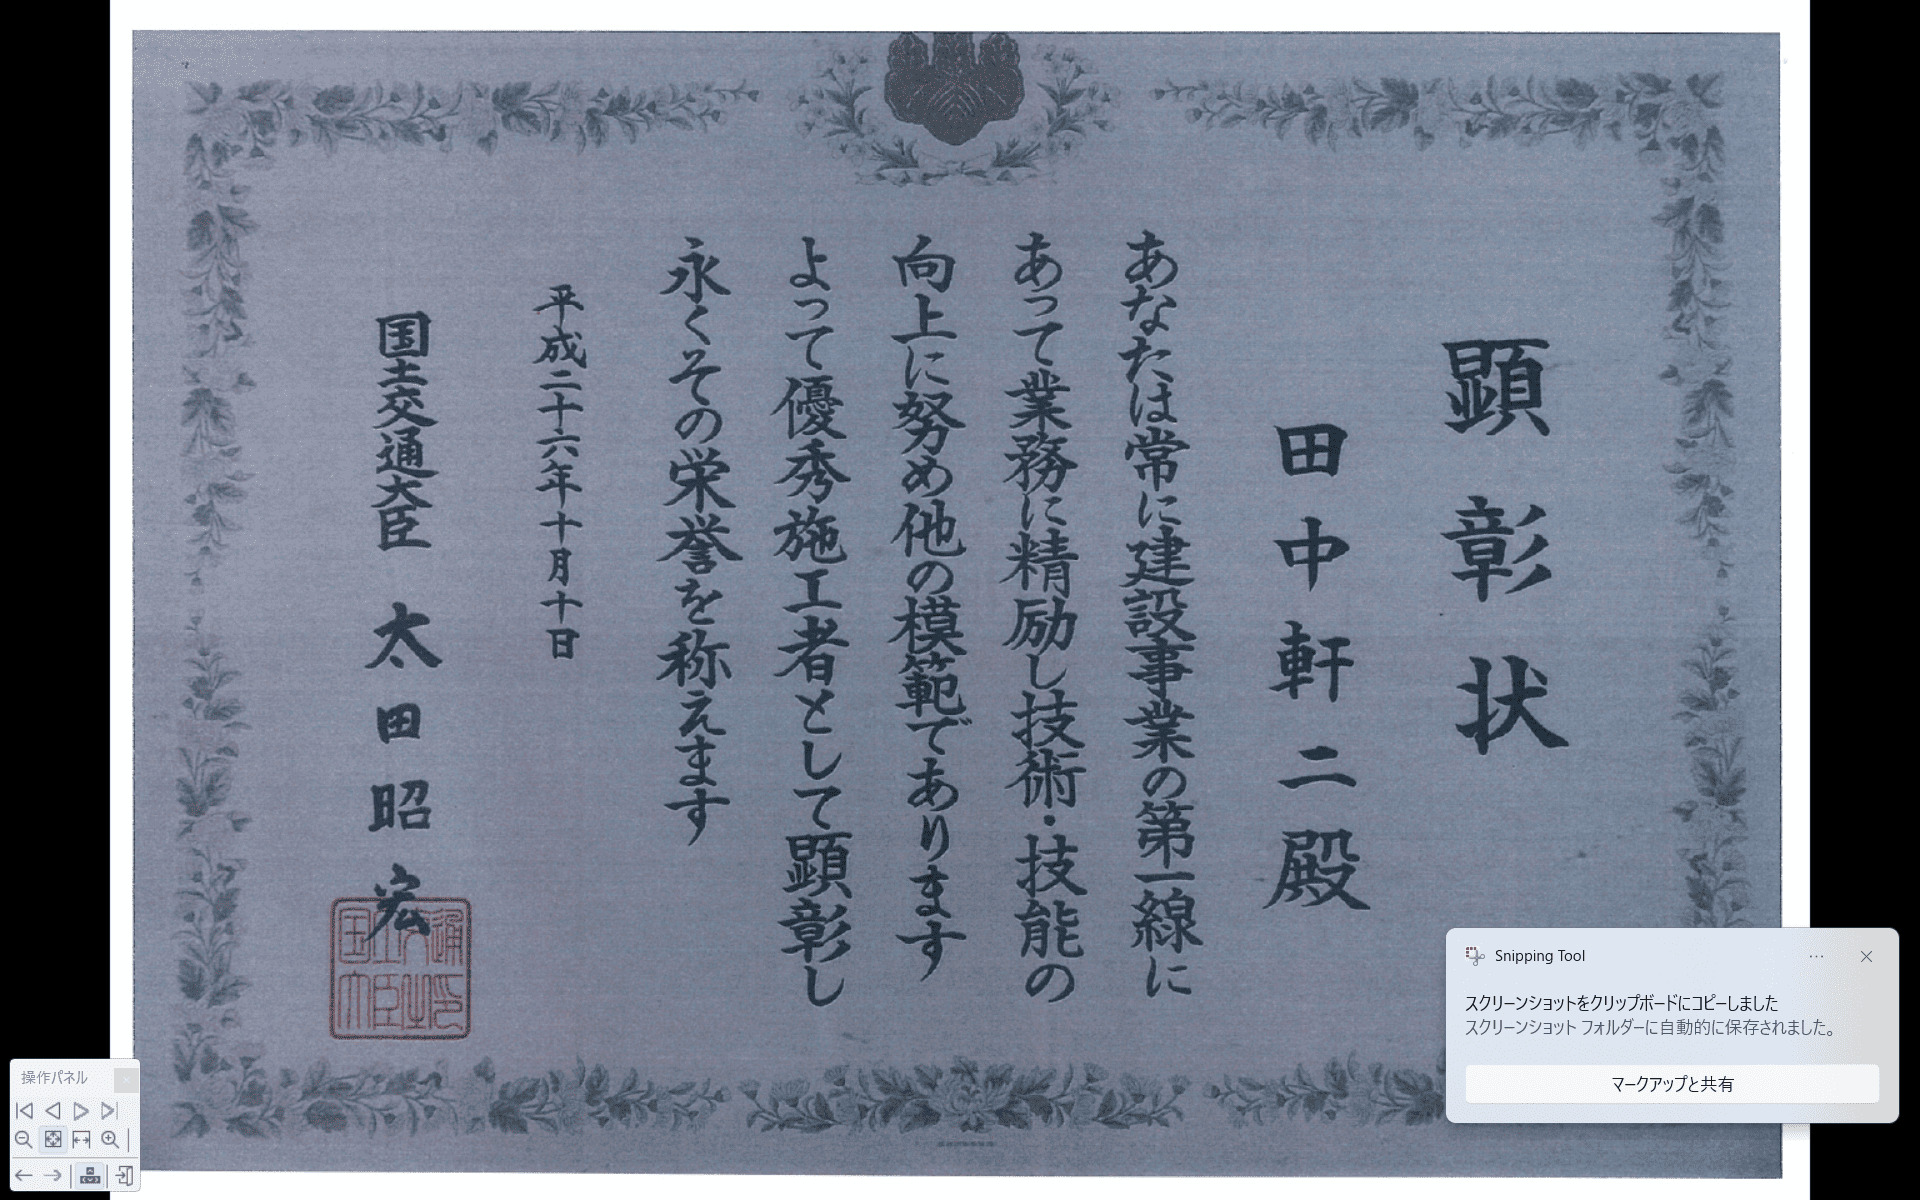 顕彰状
田中軒二殿
あなたは常に建設事業の第一線に
あって業務に精励し技術・技能の
向上に努め他の模範であります
よって優秀施工者として顕彰し
永くその栄誉を称えます
平成二十六年十月十日
国土交通大臣 太田昭宏
国土交通大臣之印
Snipping Tool
スクリーンショットをクリップボードにコピーしました
スクリーンショット フォルダーに自動的に保存されました。
マークアップと共有
操作パネル